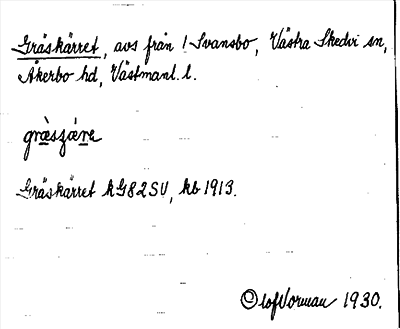 Gräskärret, avs från 1 Svansbo, Västra Skedvi sn,
Åkerbo hd, Västmanl. l.
Gräskärret kG82SV, kb 1913.
Olof Vorman 1930.